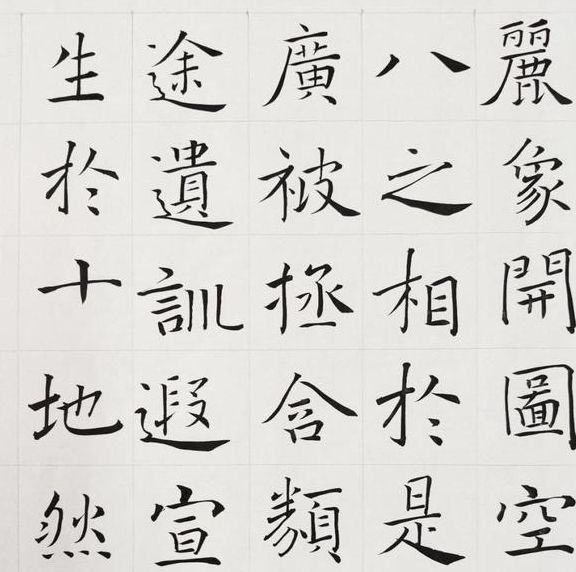 麗象開圖空
八之相於是
廣被拯含類
途遺訓遐宣
生於十地然